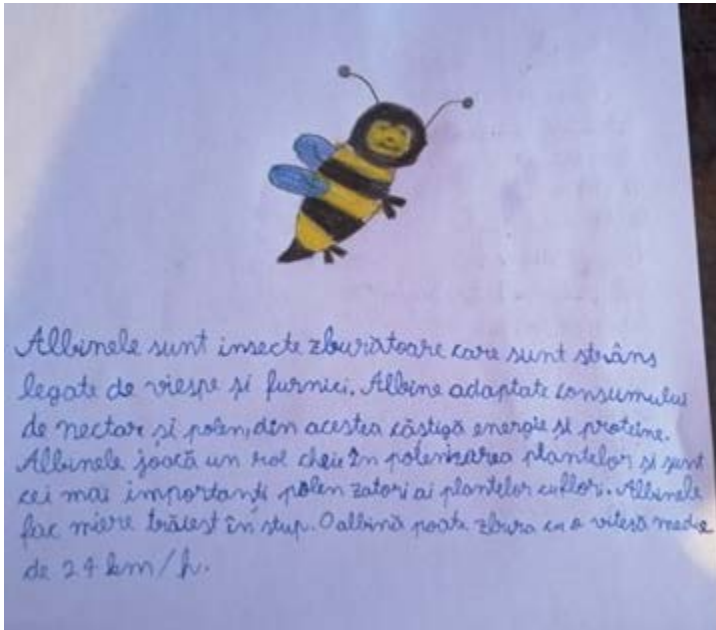 Albinele sunt insecte zburătoare care sunt strâns
legate de viespe și furnici. Albine adaptate consumului
de nectar și polen, din acestea câștigă energie și proteine.
Albinele joacă un rol cheie în polenizarea plantelor și sunt
cei mai importanți polen zatori ai plantelor cu flori. Albinele
fac miere trăiesț în stup. O albină poate zbura cu o viteză medie
de 24 km/h.